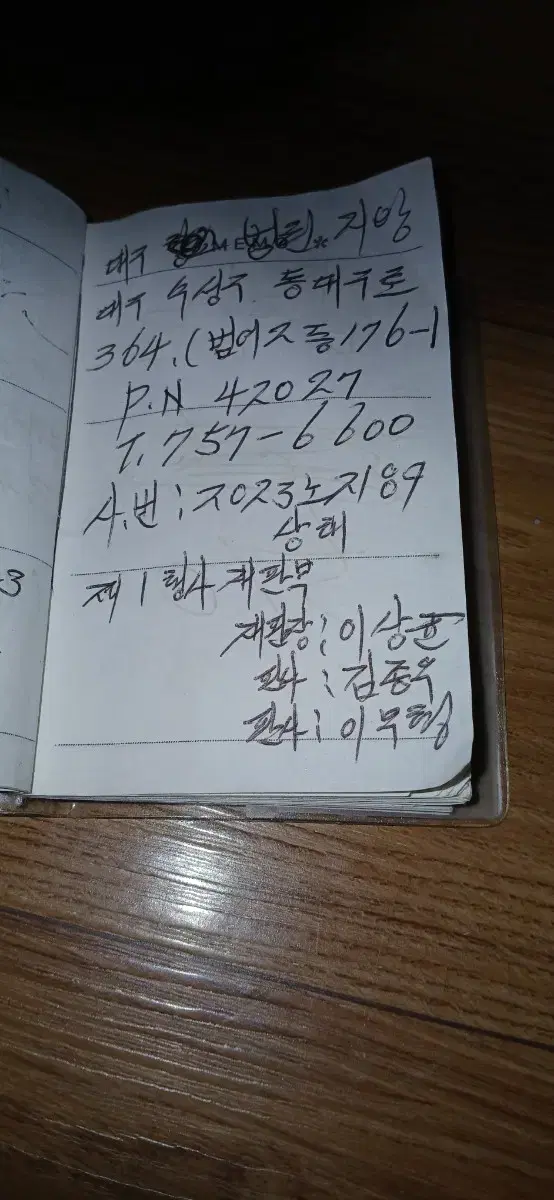 대구 법원 지방
대구 수성구 동대구로
364.(범어2동176-1
P.N 42027
T.757-6600
사.번:2023노2789
상태
제1형사재판부
재판장:이상균
판사:김종우
판사:이무형
3